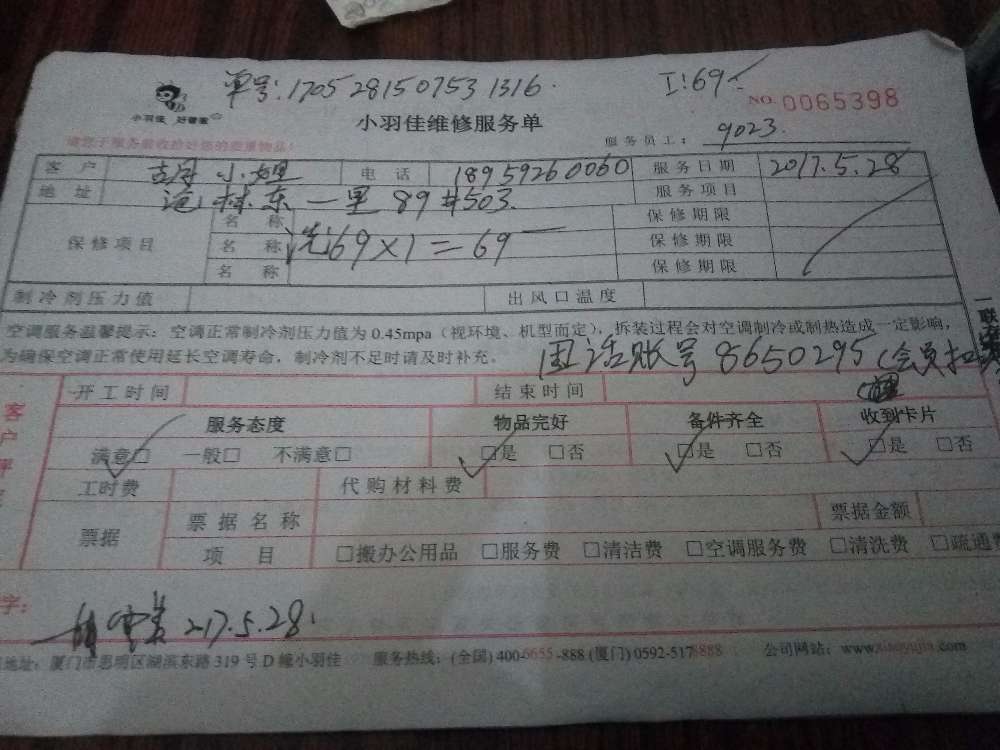 单号:1705281507531316. I:69-
小羽佳 好管家 NO. 0065398
小羽佳维修服务单
服务员工: 9023.
客户 小姐 电话 18959260060 服务日期 2017.5.28
地址 林东一里89#503. 服务项目
保修项目 名称 保修期限
名称 洗69×1=69 保修期限
名称 保修期限
制冷剂压力值 出风口温度
空调服务温馨提示:空调正常制冷剂压力值为0.45mpa(视环境、机型而定),拆装过程会对空调制冷或制热造成一定影响,
为确保空调正常使用延长空调寿命,制冷剂不足时请及时补充。
固话账号8650295(会员扣
开工时间 结束时间
服务态度 物品完好 备件齐全 收到卡片
满意□ 一般□ 不满意□ □是 □否 □是 □否 □是 □否
工时费 代购材料费
票据 票据名称 票据金额
项目 □搬办公用品 □服务费 □清洁费 □空调服务费 □清洗费 □疏通费
字:
217.5.28.
地址:厦门市思明区湖滨东路319号D幢小羽佳 服务热线:(全国)400-6655-888(厦门)0592-5178888 公司网站:www.xiaoyujia.com